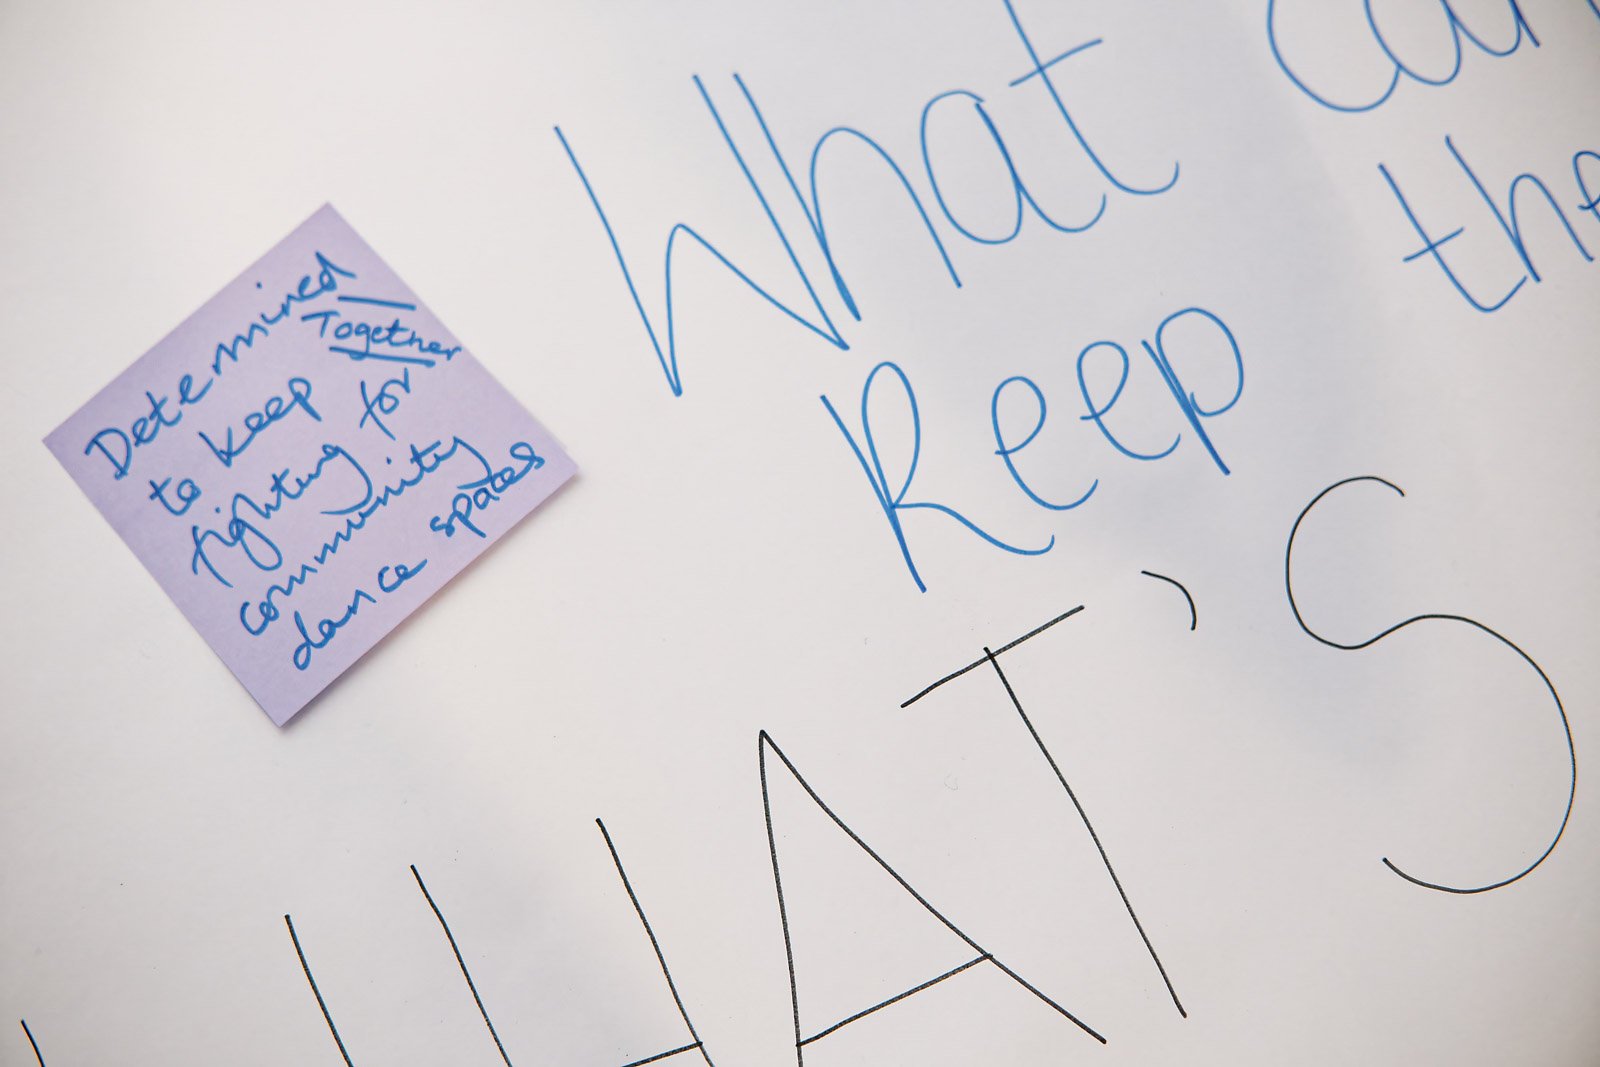 Determined
Together
to keep
fighting for
community
dance spaces
What can
keep the
WHAT'S